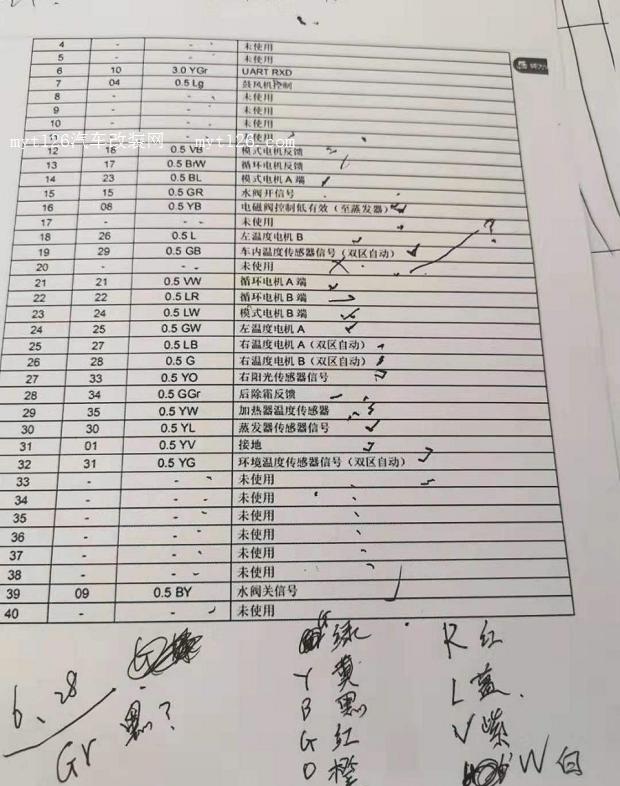 4 - - 未使用
5 - - 未使用
6 10 3.0 YGr UART RXD
7 04 0.5 Lg 鼓风机控制
8 - - 未使用
9 - - 未使用
10 - - 未使用
11 - - 未使用
myt126汽车改装网 myt126.com
12 16 0.5 VB 模式电机反馈
13 17 0.5 BrW 循环电机反馈
14 23 0.5 BL 模式电机A 端
15 15 0.5 GR 水阀开信号
16 08 0.5 YB 电磁阀控制低有效（至蒸发器）
17 - - 未使用
18 26 0.5 L 左温度电机 B
19 29 0.5 GB 车内温度传感器信号（双区自动）
20 - - 未使用
21 21 0.5 VW 循环电机 A 端
22 22 0.5 LR 循环电机 B 端
23 24 0.5 LW 模式电机 B 端
24 25 0.5 GW 左温度电机 A
25 27 0.5 LB 右温度电机 A（双区自动）
26 28 0.5 G 右温度电机 B（双区自动）
27 33 0.5 YO 右阳光传感器信号
28 34 0.5 GGr 后除霜反馈
29 35 0.5 YW 加热器温度传感器
30 30 0.5 YL 蒸发器传感器信号
31 01 0.5 YV 接地
32 31 0.5 YG 环境温度传感器信号（双区自动）
33 - - 未使用
34 - - 未使用
35 - - 未使用
36 - - 未使用
37 - - 未使用
38 - - 未使用
39 09 0.5 BY 水阀关信号
40 - - 未使用
?
6、28
Gr 黑？
绿 R 红
Y 黄 L 蓝
B 黑 V 紫
G 红 W 白
O 橙